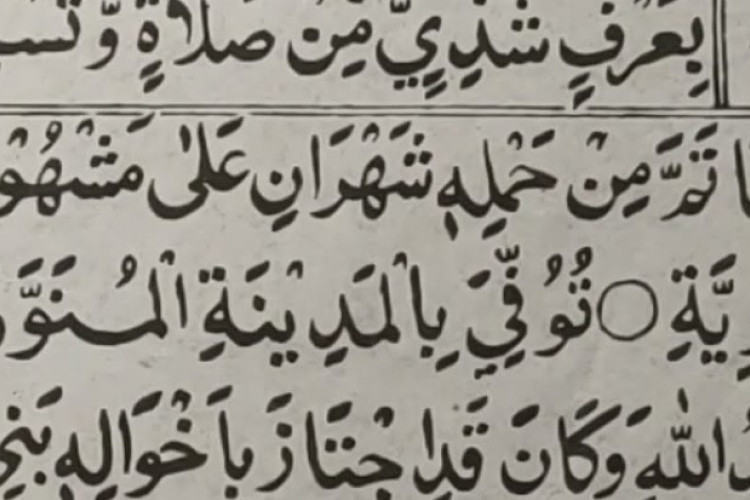 بِعَرْفٍ شَذِيٍّ مِنْ صَلَاةٍ وَّتَسْ
تَمَّ مِنْ حَمْلِهٖ شَهْرَانِ عَلٰى مَشْهُوْ
يَّةِ ○ تُوُفِّيَ بِالْمَدِيْنَةِ الْمُنَوَّ
اللّٰهِ وَكَانَ قَدِ اجْتَازَ بِاَخْوَالِهٖ بَنِيْ